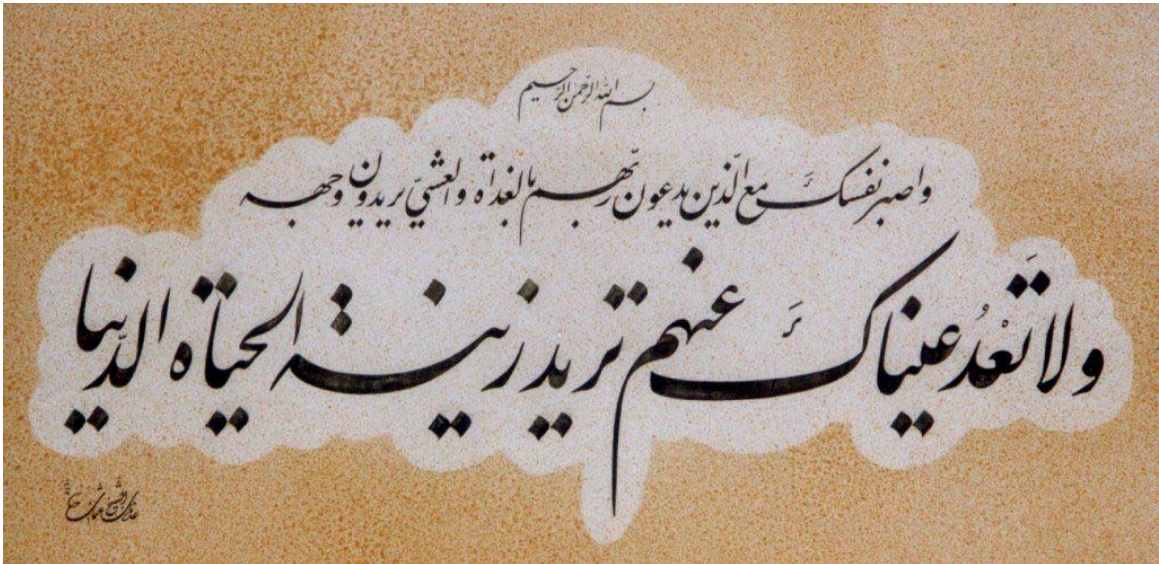 بسم الله الرحمن الرحيم
واصبر نفسكَ مع الّذين يدعون ربّهم بالغداة والعشيّ يريدون وجهه
ولا تَعْدُ عيناكَ عنهم تريد زينة الحياة الدّنيا